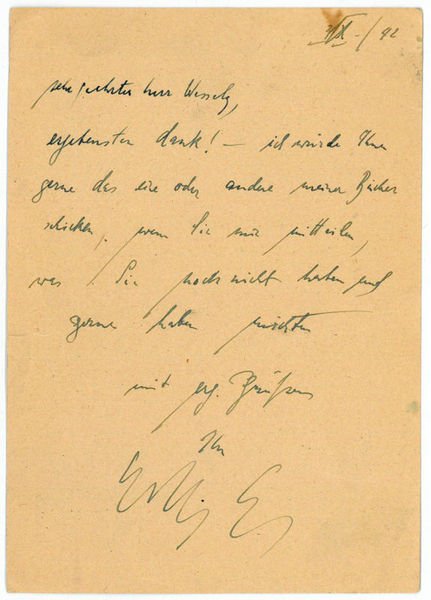 IX - / 42
sehr geehrter herr Wessely,
ergebensten dank! – ich würde Ihnen
gerne das eine oder andere meiner Bücher
schicken, wenn Sie mir mitteilen,
was Sie noch nicht haben und
gerne haben möchten
mit erg. Grüßen
Ihr